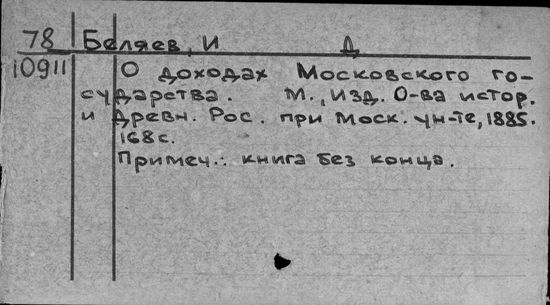 78 Беляев, И Д
10911 О доходах Московского го-
сударства. М., Изд. О-ва истор.
и Древн. Рос. при Моск. ун-те, 1885.
168с.
Примеч.: книга без конца.